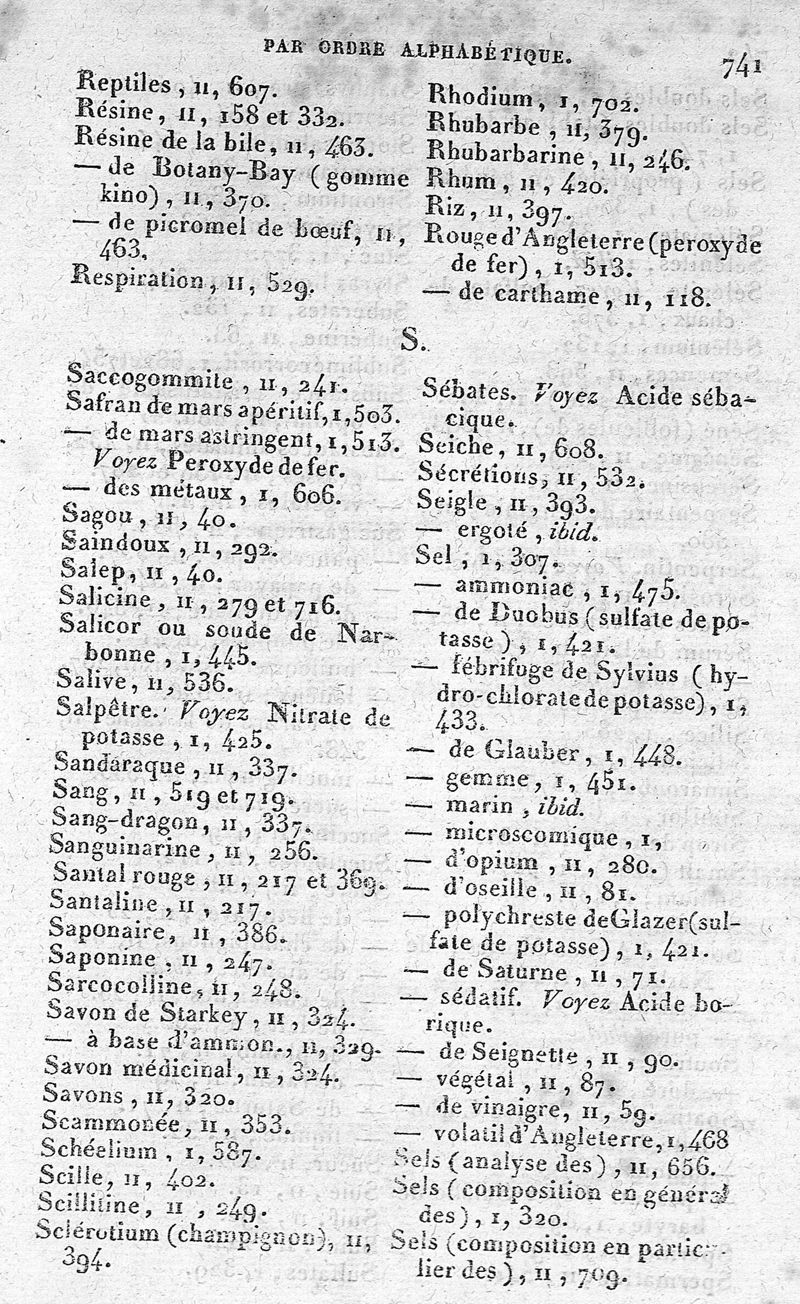 PAR ORDRE ALPHABÉTIQUE.
741
Reptiles, II, 607.
Résine, II, 158 et 332.
Résine de la bile, II, 463.
— de Botany-Bay (gomme
kino), II, 370.
— de picromel de bœuf, II,
463.
Respiration, II, 529.
Rhodium, I, 702.
Rhubarbe, II, 379.
Rhubarbarine, II, 246.
Rhum, II, 420.
Riz, II, 397.
Rouge d'Angleterre (peroxyde
de fer), I, 513.
— de carthame, II, 118.
S.
Saccogommite, II, 241.
Safran de mars apéritif, I, 503.
— de mars astringent, I, 513.
Voyez Peroxyde de fer.
— des métaux, I, 606.
Sagou, II, 40.
Saindoux, II, 292.
Salep, II, 40.
Salicine, II, 279 et 716.
Salicor ou soude de Nar-
bonne, I, 445.
Salive, II, 536.
Salpêtre. Voyez Nitrate de
potasse, I, 425.
Sandaraque, II, 337.
Sang, II, 519 et 719.
Sang-dragon, II, 337.
Sanguinarine, II, 256.
Santal rouge, II, 217 et 369.
Santaline, II, 217.
Saponaire, II, 386.
Saponine, II, 247.
Sarcocolline, II, 248.
Savon de Starkey, II, 324.
— à base d'ammon., II, 329.
Savon médicinal, II, 324.
Savons, II, 320.
Scammonée, II, 353.
Schéelium, I, 587.
Scille, II, 402.
Scillitine, II, 249.
Sclérotium (champignon), II,
394.
Sébates. Voyez Acide séba-
cique.
Seiche, II, 608.
Sécrétions, II, 532.
Seigle, II, 393.
— ergoté, ibid.
Sel, I, 307.
— ammoniac, I, 475.
— de Duobus (sulfate de po-
tasse), I, 421.
— fébrifuge de Sylvius (hy-
dro-chlorate de potasse), I,
433.
— de Glauber, I, 448.
— gemme, I, 451.
— marin, ibid.
— microscomique, I,
— d'opium, II, 280.
— d'oseille, II, 81.
— polychreste de Glazer (sul-
fate de potasse), I, 421.
— de Saturne, II, 71.
— sédatif. Voyez Acide bo-
rique.
— de Seignette, II, 90.
— végétal, II, 87.
— de vinaigre, II, 59.
— volatil d'Angleterre, I, 468
Sels (analyse des), II, 656.
Sels (composition en général
des), I, 320.
Sels (composition en particu-
lier des), II, 709.